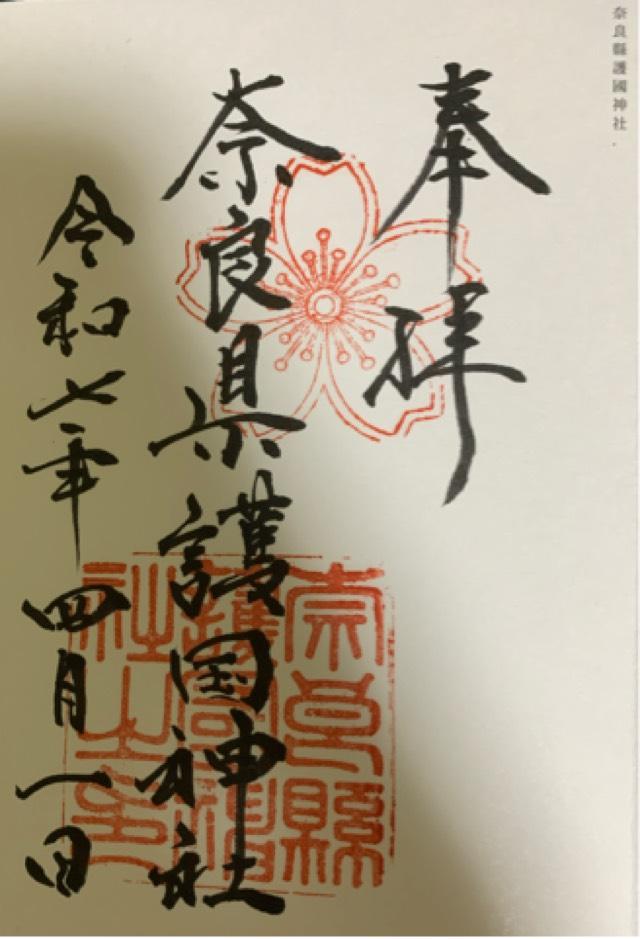 奈良縣護國神社
奉拝
奈良県護国神社
令和七年四月一日
奈良縣護國神社之印